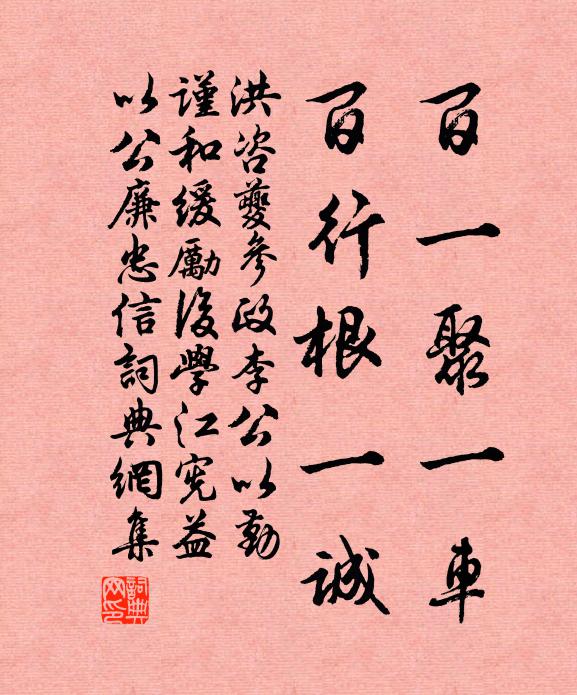 百一聚一車
百行根一誠
洪咨夔參政李公以勤
謹和緩勵後學江宪益
以公廉忠信詞典網集
詞典網印